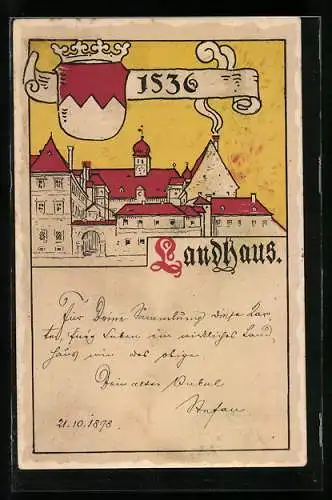 1536
Landhaus.
Für Deine Sammlung diese Kar-
te, zum Leben ein wirkliches Land-
haus wie das obige
Dein alter Onkel
Stefan
21.10.1898